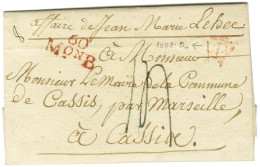 affaire de Jean Marie
60
MONB.
à Monsieur
Monsieur Le Maire de la Commune
de Cassis, par Marseille
à Cassis.